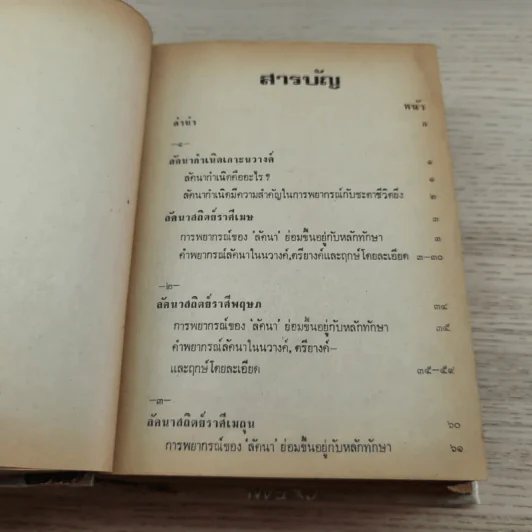 สารบัญ
หน้า
คำนำ
—๑—
ลัคนากำเนิดเกาะนวางค์ ๑
ลัคนากำเนิดคืออะไร ? ๑
ลัคนากำเนิดมีความสำคัญในการพยากรณ์กับชะตาชีวิตยิ่ง ๒
ลัคนาสถิตย์ราศีเมษ ๓
การพยากรณ์ของ 'ลัคนา' ย่อมขึ้นอยู่กับหลักทักษา ๓
คำพยากรณ์ลัคนาในนวางค์, ตรียางค์และฤกษ์โดยละเอียด ๓-๓๐
—๒—
ลัคนาสถิตย์ราศีพฤษภ ๓๔
การพยากรณ์ของ 'ลัคนา' ย่อมขึ้นอยู่กับหลักทักษา ๓๕
คำพยากรณ์ลัคนาในนวางค์, ตรียางค์—
และฤกษ์โดยละเอียด ๓๕-๕๙
—๓—
ลัคนาสถิตย์ราศีเมถุน ๖๐
การพยากรณ์ของ 'ลัคนา' ย่อมขึ้นอยู่กับหลักทักษา ๖๑